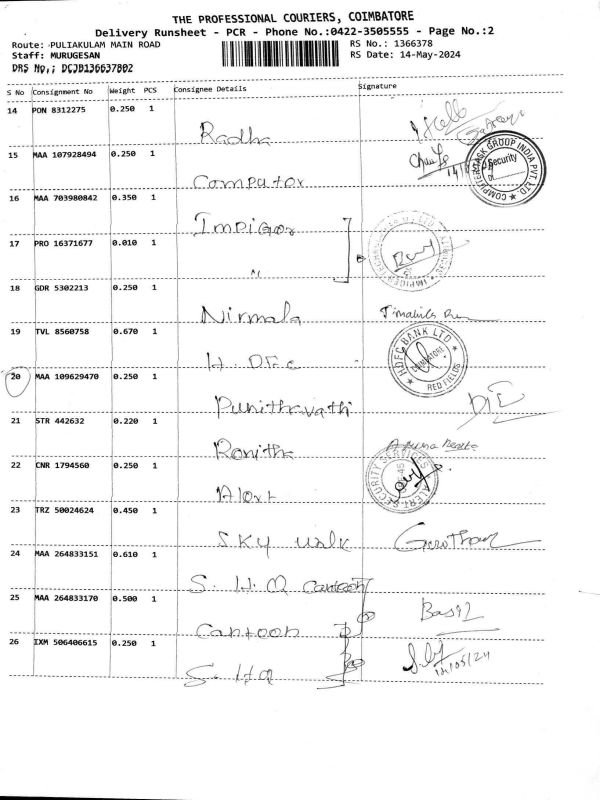 THE PROFESSIONAL COURIERS, COIMBATORE
Delivery Runsheet - PCR - Phone No.:0422-3505555 - Page No.:2
Route: PULIAKULAM MAIN ROAD
RS No.: 1366378
Staff: MURUGESAN
RS Date: 14-May-2024
DRS No,; DCJB136637802
S No Consignment No Weight PCS Consignee Details Signature
14 PON 8312275 0.250 1
Radha
15 MAA 107928494 0.250 1
Computer
COMPUTER TASK GROUP INDIA PVT LTD
Security
16 MAA 703980842 0.350 1
Impiger
17 PRO 16371677 0.010 1
"
18 GDR 5302213 0.250 1
Nirmala
19 TVL 8560758 0.670 1
H. DFc
HDFC BANK LTD
COIMBATORE
RED FIELDS
20 MAA 109629470 0.250 1
Punithavathi
21 STR 442632 0.220 1
Ronitha
22 CNR 1794560 0.250 1
Alert
ALERT SECURITY SERVICES
23 TRZ 50024624 0.450 1
Sky walk
24 MAA 264833151 0.610 1
S. H. Q canteen
25 MAA 264833170 0.500 1
Canteen
Basil
26 IXM 506406615 0.250 1
S. HQ